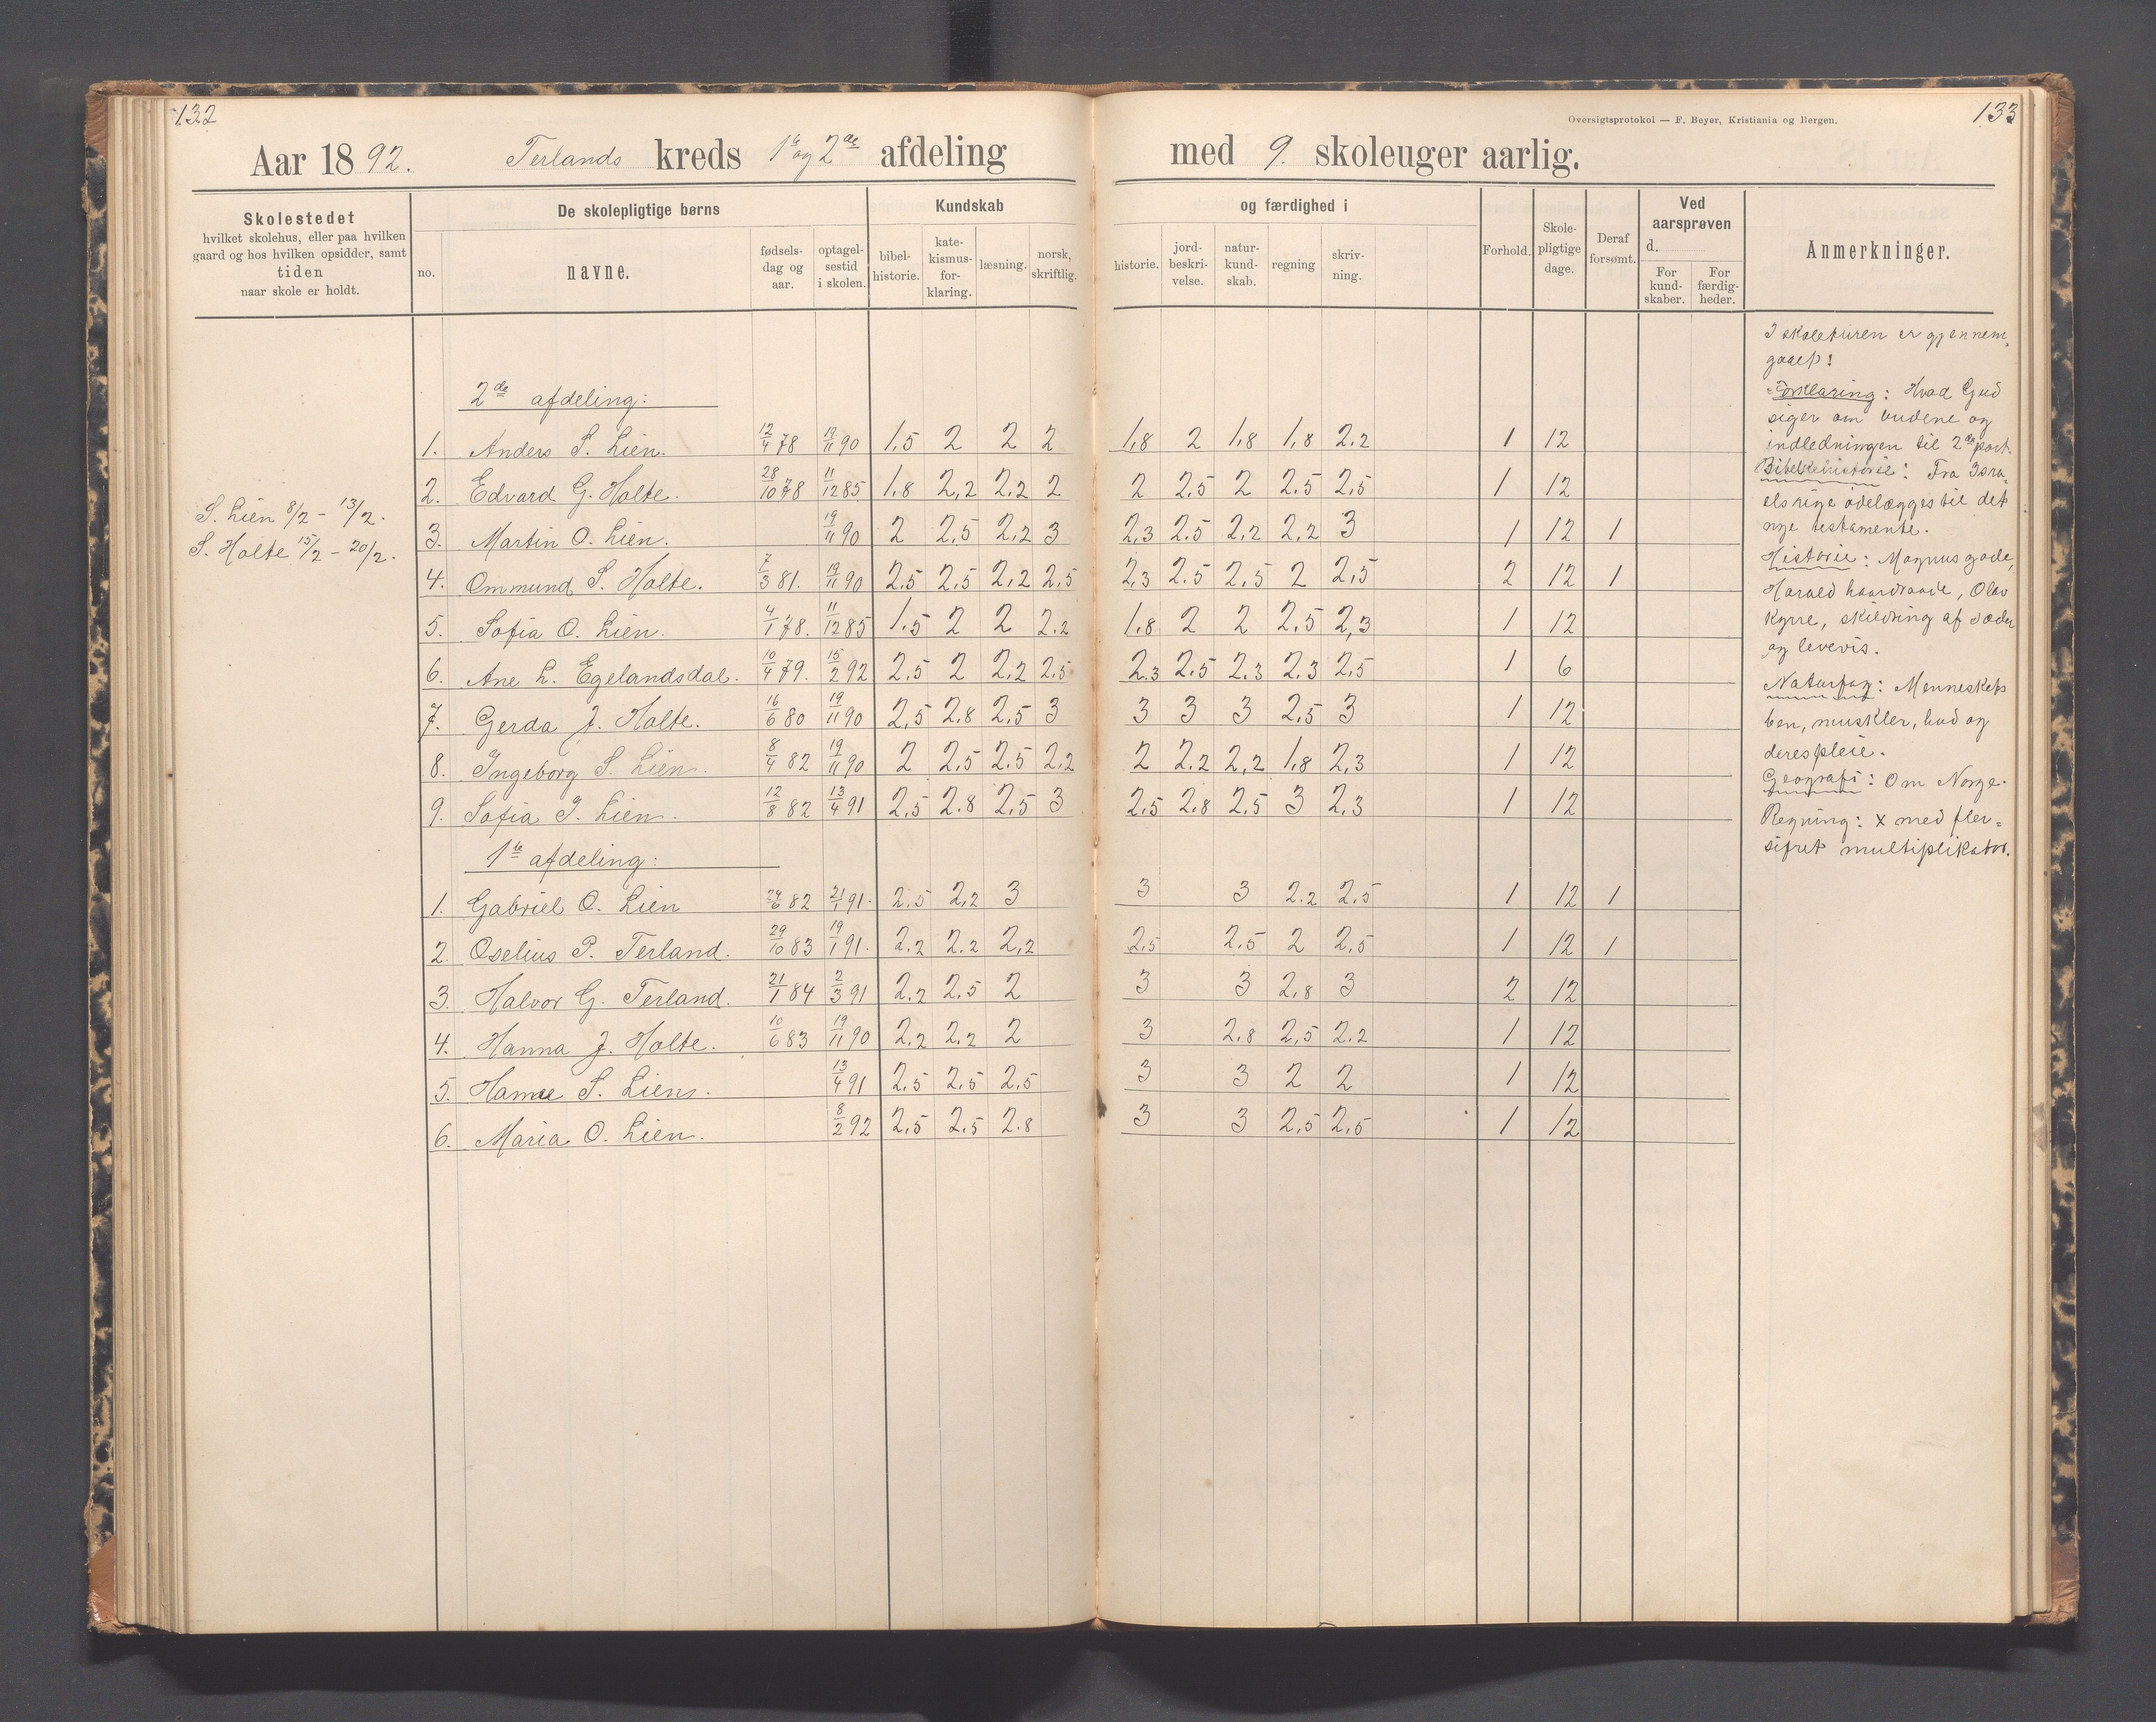 132
133
Oversigtsprotokol — F. Beyer, Kristiania og Bergen.
Aar 1892. Terlands kreds 1te og 2den afdeling med 9. skoleuger aarlig.
Skolestedet
hvilket skolehus, eller paa hvilken
gaard og hos hvilken opsidder, samt
tiden
naar skole er holdt.
De skolepligtige børns
no. navne. fødsels-dag og aar. optagel-sestid i skolen.
Kundskab og færdighed i
bibel-historie. kate-kismus-for-klaring. læsning. norsk, skriftlig. historie. jord-beskri-velse. natur-kund-skab. regning skriv-ning.
Forhold. Skole-pligtige dage. Deraf forsømt.
Ved aarsprøven d.
For kund-skaber. For færdig-heder.
Anmerkninger.
S. Lien 8/2 - 13/2.
S. Holte 15/2 - 20/2.
2de afdeling:
1. Anders S. Lien. 12/4 78 19/11 90 1,5 2 2 2 1,8 2 1,8 1,8 2,2 1 12
2. Edvard G. Holte. 28/10 78 11/12 85 1,8 2,2 2,2 2 2 2,5 2 2,5 2,5 1 12
3. Martin O. Lien. 19/11 90 2 2,5 2,2 3 2,3 2,5 2,2 2,2 3 1 12 1
4. Ommund S. Holte. 7/3 81. 19/11 90 2,5 2,5 2,2 2,5 2,3 2,5 2,5 2 2,5 2 12 1
5. Sofia O. Lien. 4/1 78. 11/12 85 1,5 2 2 2,2 1,8 2 2 2,5 2,3 1 12
6. Ane L. Egelandsdal. 10/4 79. 15/2 92 2,5 2 2,2 2,5 2,3 2,5 2,3 2,3 2,5 1 6
7. Gerda J. Holte. 16/6 80 19/11 90 2,5 2,8 2,5 3 3 3 3 2,5 3 1 12
8. Ingeborg S. Lien. 8/4 82 19/11 90 2 2,5 2,5 2,2 2 2,2 2,2 1,8 2,3 1 12
9. Sofia J. Lien. 12/8 82 13/4 91 2,5 2,8 2,5 3 2,5 2,8 2,5 3 2,3 1 12
1te afdeling:
1. Gabriel O. Lien 24/6 82 21/1 91. 2,5 2,2 3 3 3 2,2 2,5 1 12 1
2. Oselius P. Terland. 29/10 83 19/1 91. 2,2 2,2 2,2 2,5 2,5 2 2,5 1 12 1
3. Halvor G. Terland. 21/1 84 2/3 91 2,2 2,5 2 3 3 2,8 3 2 12
4. Hanna J. Holte. 10/6 83 19/11 90 2,2 2,2 2 3 2,8 2,5 2,2 1 12
5. S. Lien. 13/4 91 2,5 2,5 2,5 3 3 2 2 1 12
6. Maria O. Lien. 8/2 92 2,5 2,5 2,8 3 3 2,5 2,5 1 12
I skoleturen er gjennem-
gaaet:
Forklaring: Hvad Gud
siger om budene og
indledningen til 2den part.
Bibelhistorie: Fra Isra-
els rige ødelægges til det
nye testamente.
Historie: Magnus gode,
Harald haardraade, Olav
kyrre, skildring af sæder
og levevis.
Naturfag: Menneskets
ben, muskler, hud og
deres pleie.
Geografi: Om Norge.
Regning: x med fler-
sifret multiplikator.